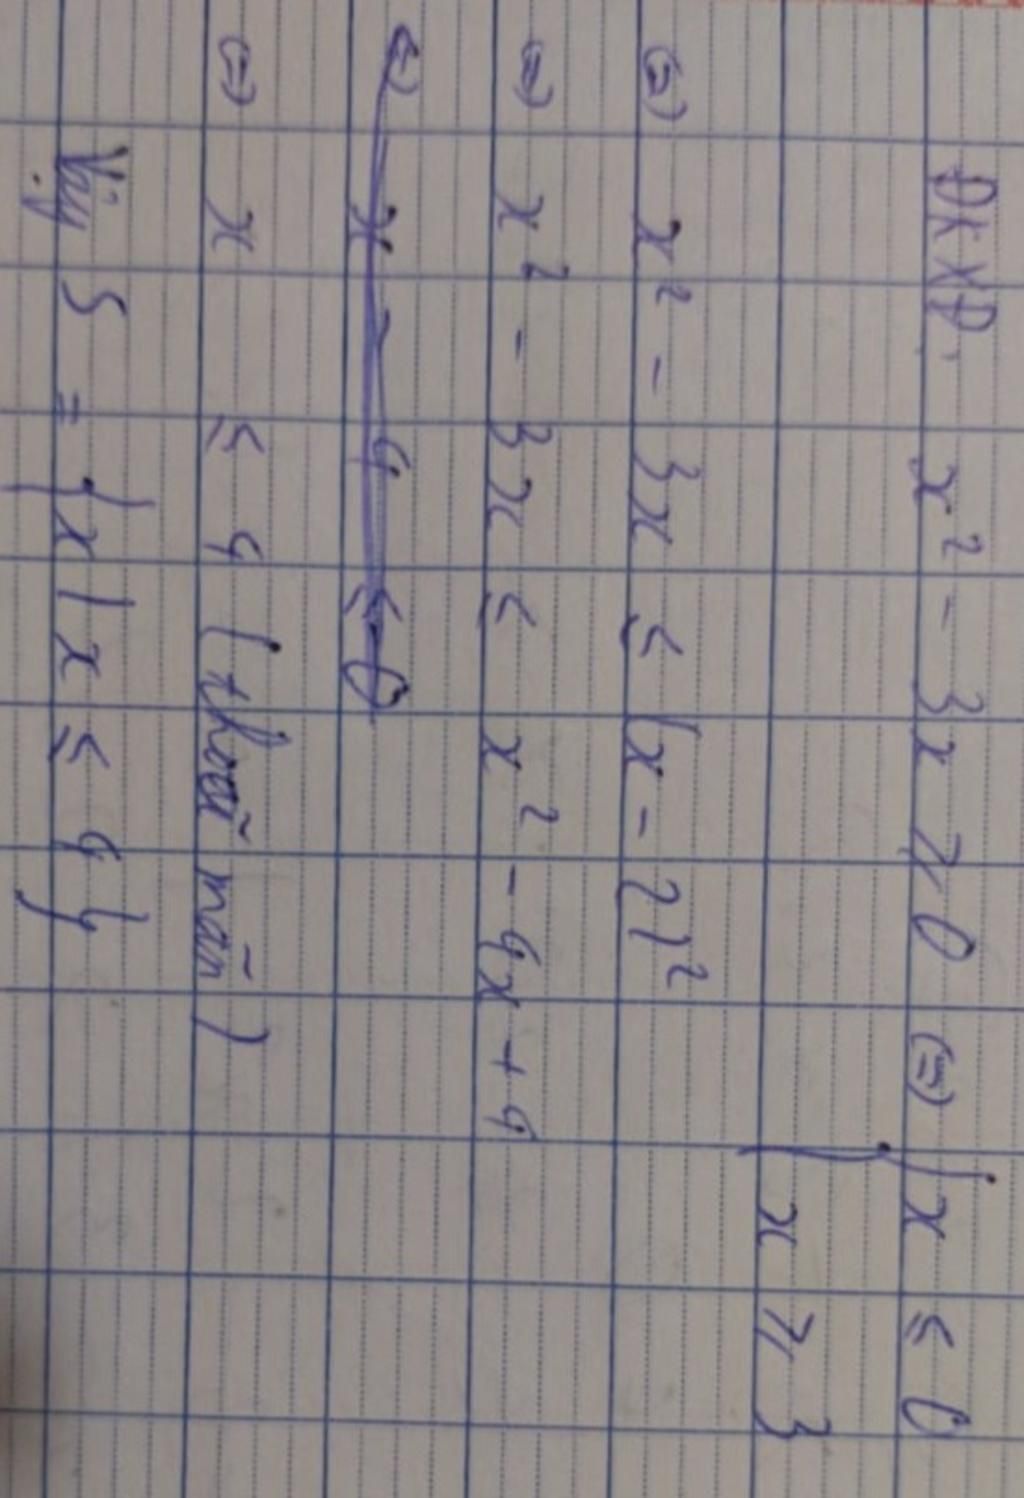 ĐKXĐ: x² - 3x ≥ 0 (=) { x ≤ 0
x ≥ 3
(=) x² - 3x ≤ (x - 2)²
(=) x² - 3x ≤ x² - 4x + 4
(=) x - 4 ≤ 0
(=) x ≤ 4 (thoả mãn)
Vậy S = {x | x ≤ 4}